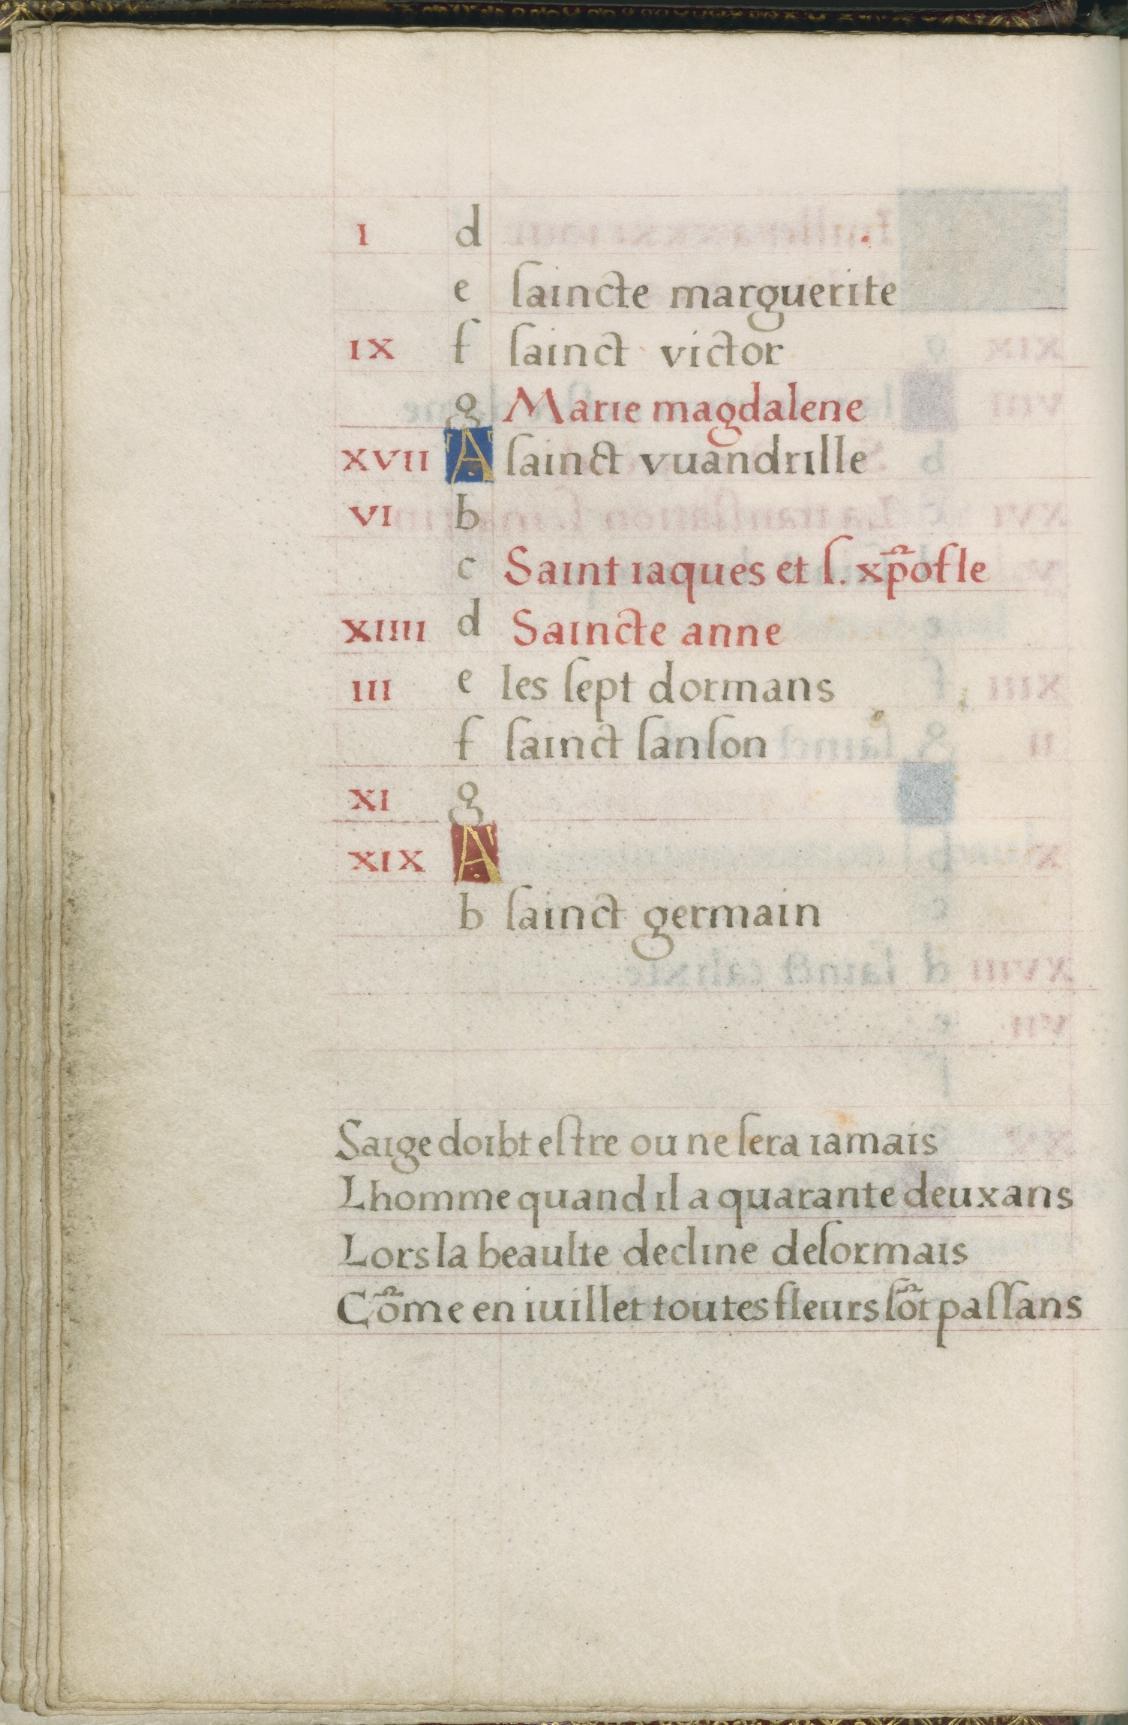 I d
e ſaincte marguerite
IX f ſainct victor
g Marie magdalene
XVII A ſainct vuandrille
VI b
c Saint iaques et ſ. xp̃ofle
XIIII d Saincte anne
III e les ſept dormans
f ſainct ſanſon
XI g
XIX A
b ſainct germain
Saige doibt eſtre ou ne ſera iamais
Lhomme quand il a quarante deux ans
Lors la beaulte decline deſormais
Cõme en iuillet toutes fleurs ſõt paſſans